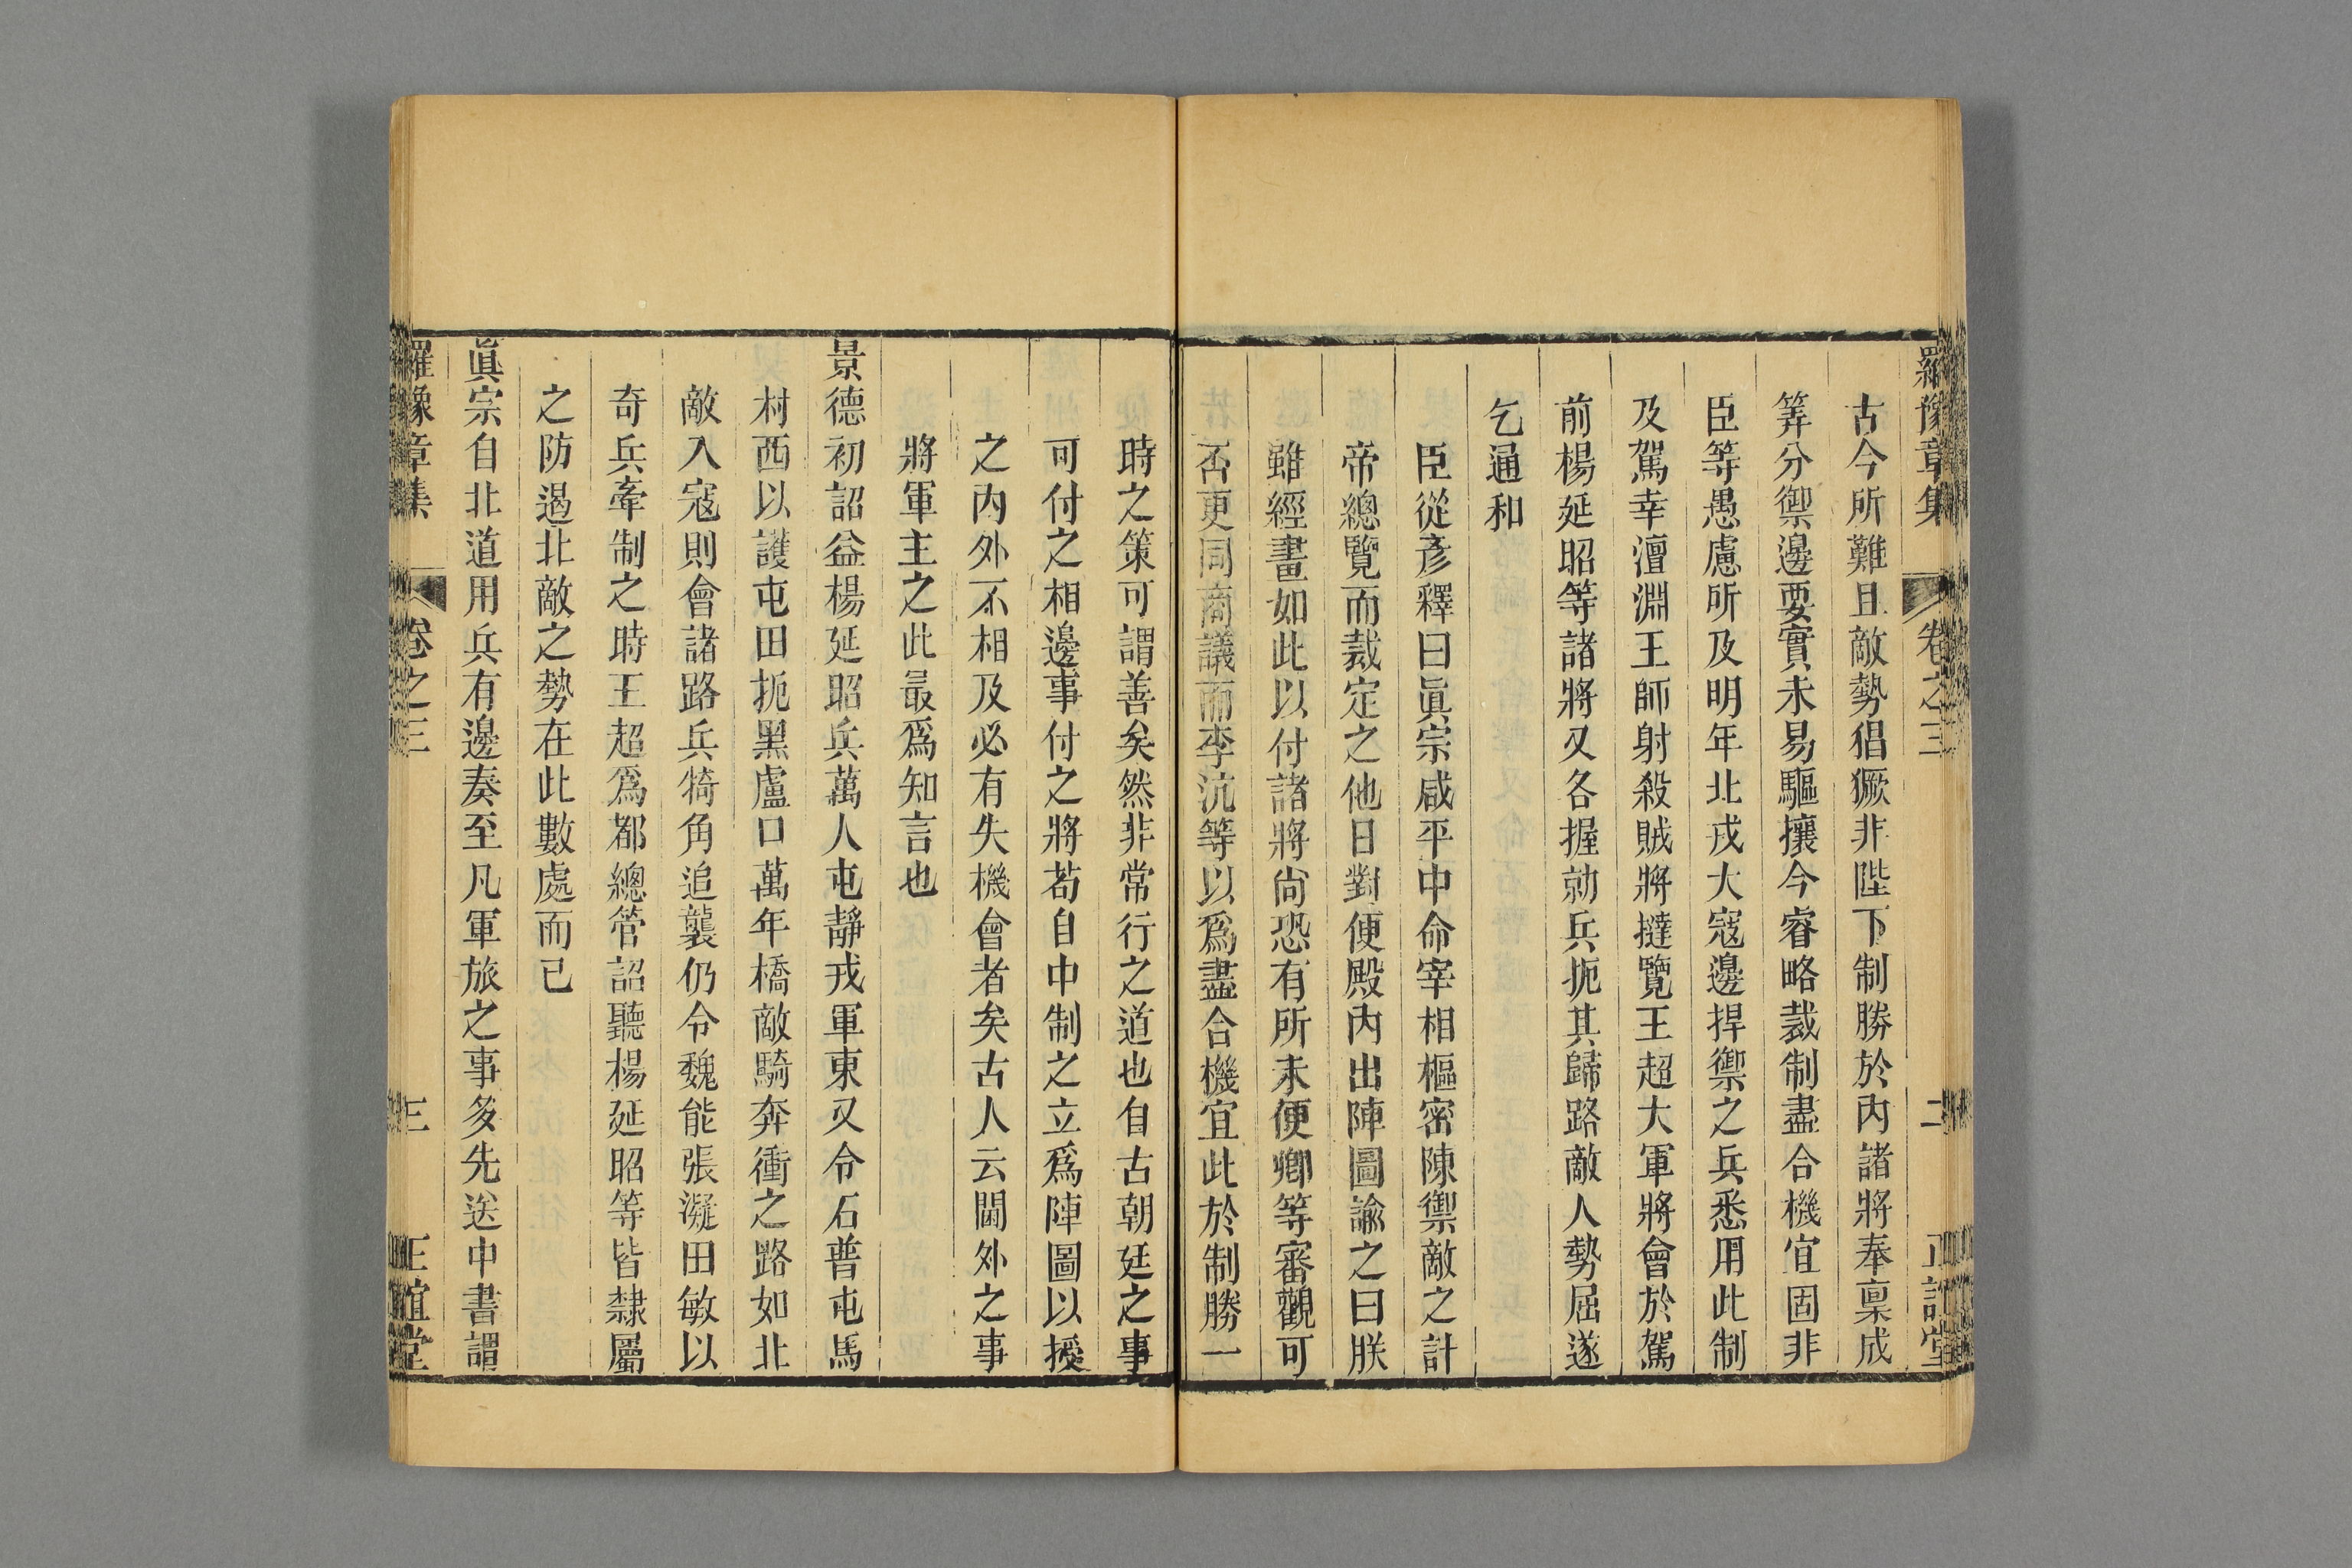 羅豫章集 卷之三 二 正誼堂
古今所難且敵勢猖獗非陛下制勝於內諸將奉稟成
筭分禦邊要實未易驅攘今睿略裁制盡合機宜固非
臣等愚慮所及明年北戎大寇邊捍禦之兵悉用此制
及駕幸澶淵王師射殺賊將撻覽王超大軍將會於駕
前楊延昭等諸將又各握勍兵扼其歸路敵人勢屈遂
乞通和
臣從彥釋曰眞宗咸平中命宰相樞密陳禦敵之計
帝總覽而裁定之他日對便殿內出陣圖諭之曰朕
雖經畫如此以付諸將尙恐有所未便卿等審觀可
否更同商議而李沆等以爲盡合機宜此於制勝一
時之策可謂善矣然非常行之道也自古朝廷之事
可付之相邊事付之將若自中制之立爲陣圖以授
之內外不相及必有失機會者矣古人云閫外之事
將軍主之此最爲知言也
景德初詔益楊延昭兵萬人屯靜戎軍東又令石普屯馬
村西以護屯田扼黑盧口萬年橋敵騎奔衝之路如北
敵入寇則會諸路兵犄角追襲仍令魏能張凝田敏以
奇兵牽制之時王超爲都總管詔聽楊延昭等皆隸屬
之防遏北敵之勢在此數處而已
眞宗自北道用兵有邊奏至凡軍旅之事多先送中書謂
羅豫章集 卷之三 三 正誼堂